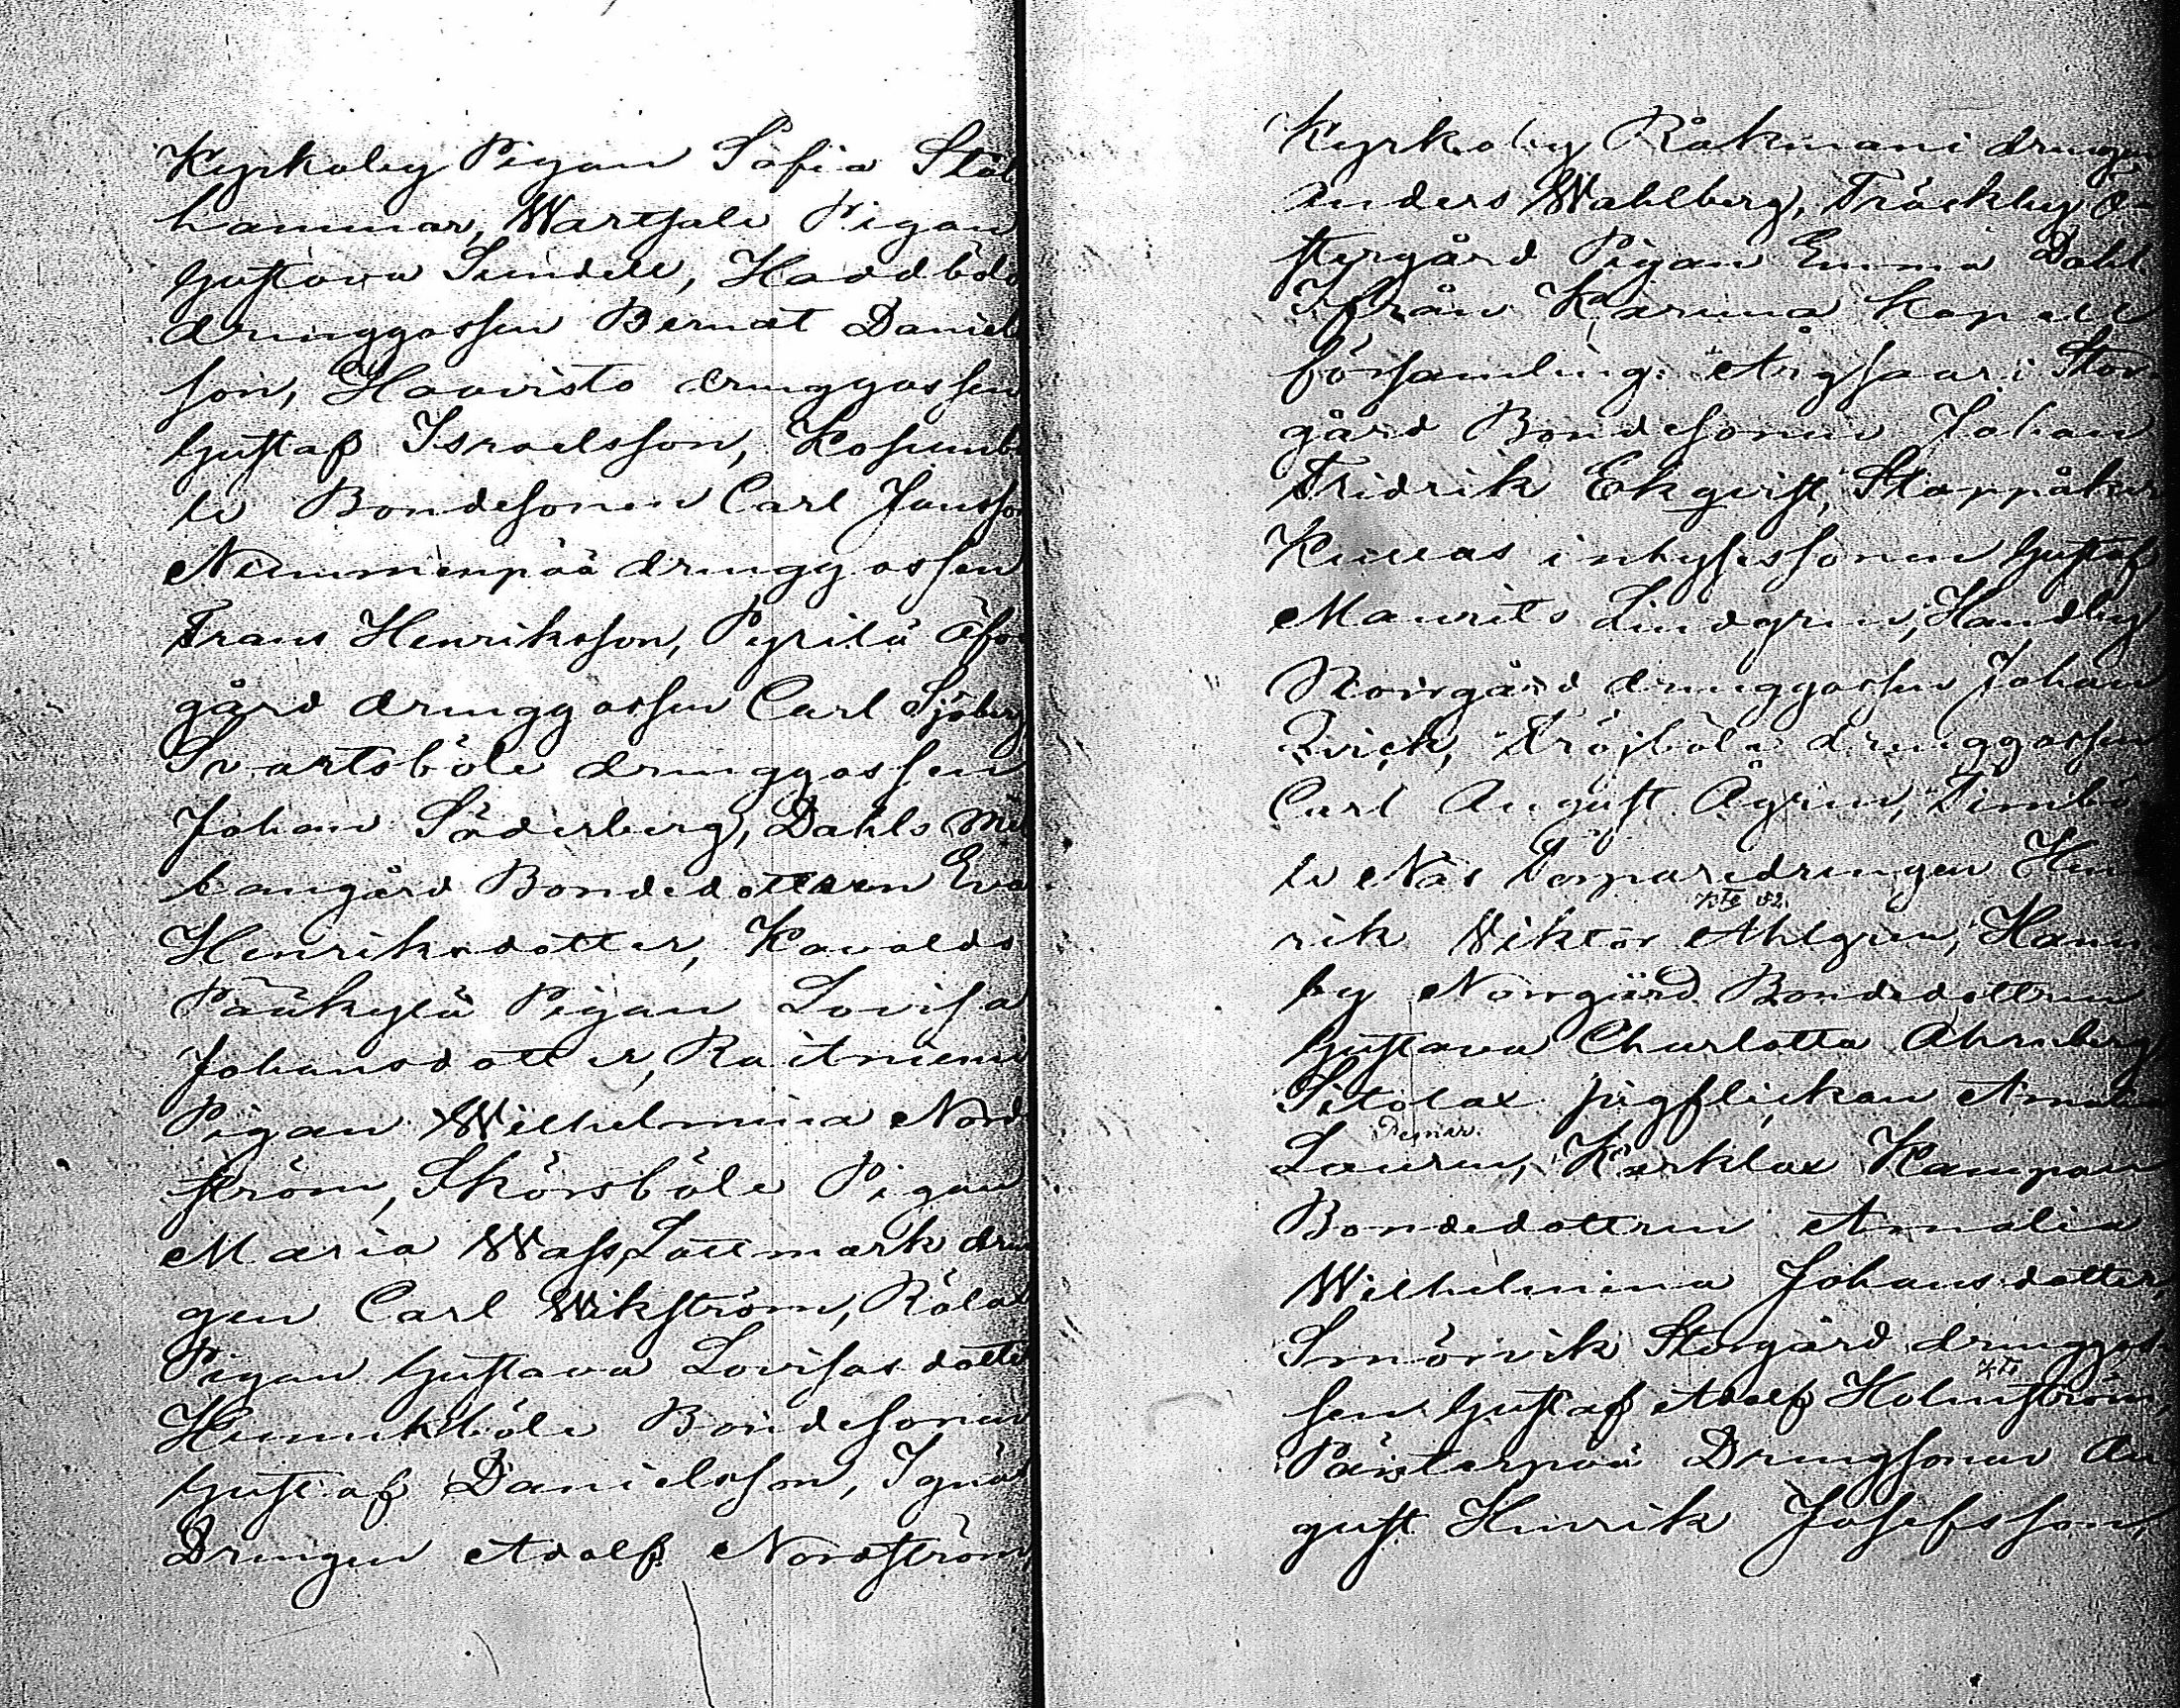 Kyrkoby Pigan Sofia Stål
hammar, Wartsale Pigan
Gustava Sundell, Haddböle
drenggossen Bernat Daniels
son, Haavisto drenggossen
Gustaf Israelsson, Kosumbö
le Bondesonen Carl Jansson
Nummenpää drenggossen
Frans Henriksson, Pyrilä Öfver
gård drenggossen Carl Sjöberg
Svartsböle drenggossen
Johan Söderberg, Dahls Mel
langård Bondedottren Eva
Henriksdotter, Kavalds
Pääkylä Pigan Lovisa
Johansdotter, Raitniemi
Pigan Wilhelmina Nord
ström, Skörsböle Pigan
Maria Wass, Lättmark dren
gen Carl Wikström, Rölax
Pigan Gustava Lovisasdotter
Hunnukböle Bondesonen
Gustaf Danielsson, Ignäs
Drengen Adolf Nordström
Kyrkoby Råkmani drengen
Anders Wahlberg, Träckby Ö
stergård Pigan Emma Dahl.
Ifrån Karuna kapell
församling: Angsaari Stor
gård Bondesonen Johan
Fridrik Ekqvist, Stappåker
Kullas inhysessonen Gustaf
Maurits Lindgren, Handby
Norrgård drenggossen Johan
Qvick, Dröjböle drenggossen
Carl August Ågren, Timbö
le Näs Torparedrengen Hen
rik Viktor Ahlgren, Hamn
by Norrgård Bondedottren
Gustava Charlotta Ahrnberg
Sitolax pigflickan Amalia
Pemar.
Lauren, Karklax Kampan
Bondedottren Amalia
Wilhelmina Johansdotter,
Smörvik Storgård drenggos
sen Gustaf Adolf Holmström,
Päisterpää Drengsonen Au
gust Henrik Josefsson,